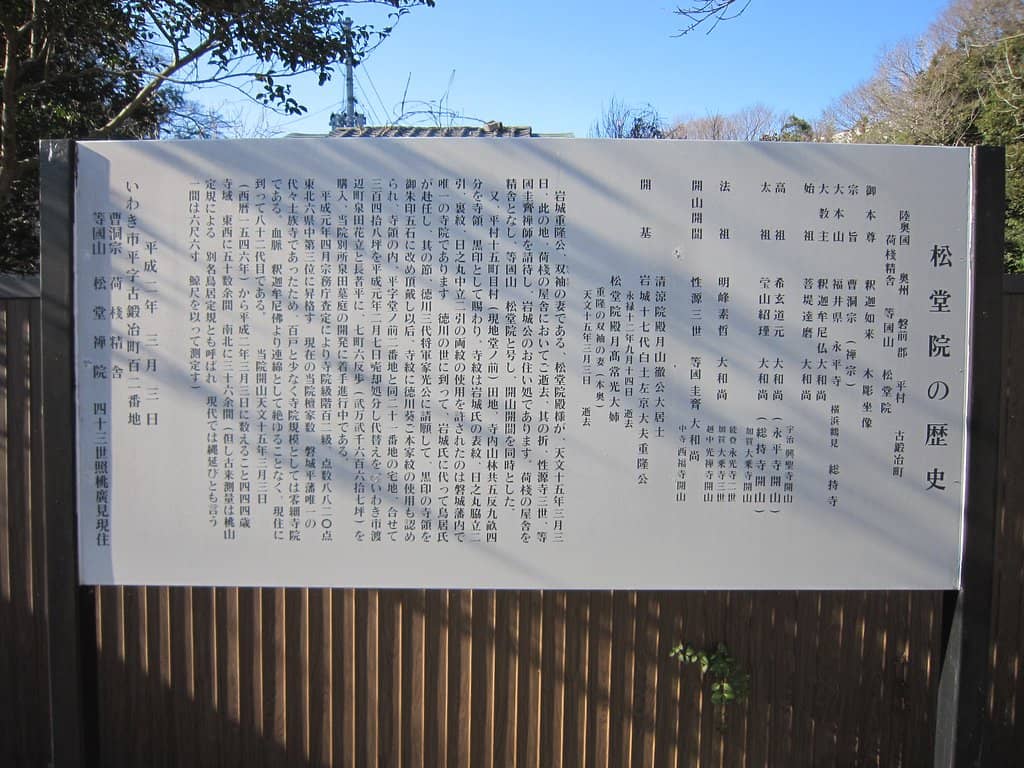 松堂院の歴史
陸奥國 奥州 磐前郡 平村 古鍛冶町
荷桟精舎 等國山 松堂院
御本尊 釈迦如来 木彫坐像
宗旨 曹洞宗（禅宗）
大本山 福井県 永平寺 横浜鶴見 総持寺
大教主 釈迦牟尼仏大和尚
始祖 菩堤達磨 大和尚
高祖 希玄道元 大和尚（永平寺開山） 宇治 興聖寺開山
太祖 瑩山紹瑾 大和尚（総持寺開山） 加賀大乗寺開山
法祖 明峰素哲 大和尚 能登永光寺二世
加賀大乗寺三世
越中光禅寺開山
開山開闢 性源三世 等国圭齊 大和尚 中寺西福寺開山
開基 清涼院殿月山澈公大居士
岩城十七代白土左京大夫重隆公
永禄十二年九月十四日 逝去
松堂院殿月高常光大姉
重隆の双袖の妻（本奥）
天文十五年三月三日 逝去
岩城重隆公、双袖の妻である、松堂院殿様が、天文十五年三月三
日、此の地、荷桟の屋舎においてご逝去、其の折、性源寺三世、等
国圭齊禅師を請待し、岩城公のお住い処であります。荷桟の屋舎を
精舎となし、等国山 松堂院と号し、開山開闢を同時とした。
又、平村十五町目村（現地堂ノ前）田地、寺内山林共五反九畝四
分を寺領、黒印として賜わり、寺紋は岩城氏の表紋、日之丸脇立二
引、裏紋、日之丸中立二引の両紋の使用を許されたのは磐城藩内で
唯一の寺院であります。徳川の世に到って、岩城氏に代って鳥居氏
が赴任し、其の節、徳川三代将軍家光公に請願して、黒印の寺領を
御朱印五石に改め頂戴し以后、寺紋に徳川葵ご本家紋の使用も認め
られ、寺領の内、平字堂ノ前二番地と同二十一番地の宅地、合せて
三百四拾八坪を平成元年二月七日売却処分し代替えを、いわき市渡
辺町泉田花立と長者平に 七町六反歩（弐万弐千六百六拾七坪）を
購入、当院別所泉田墓庭の開発に着手進行中である。
平成元年四月宗務庁査定により寺院級階百二級、点数八八二〇点
東北六県中第三位に昇格す 現在の当院檀家数、磐城平藩唯一の
代々士族寺であったため、百戸と少なく寺院規模としては零細寺院
である。血脈、釈迦牟尼佛より連綿として絶ゆることなく、現住に
到って八十二代目である。 当院開山天文十五年三月三日
（西暦一五四六年）から平成二年三月三日に数えること四四四歳
寺域 東西に五十数余間 南北に三十六余間（但し古来測量は桃山
定規による 別名鳥居定規とも呼ばれ 現代では縄延びとも言う
一間は六尺六寸 鯨尺を以って測定す）
平成二年 三月三日
いわき市平字古鍛冶町百二番地
曹洞宗 荷桟精舎
等國山 松堂禅院 四十三世照桃廣見現住